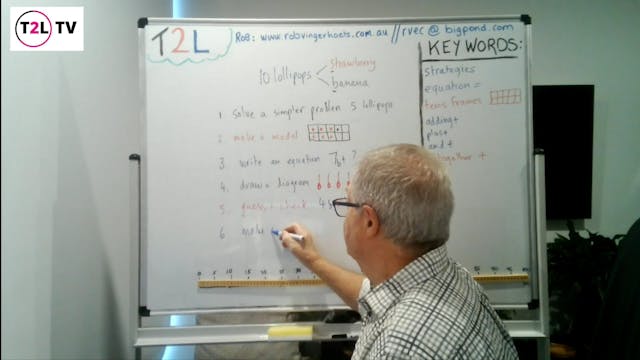 T2L TV
T2L
Rob: www.robvingerhoets.com.au // rvec @ bigpond.com
KEY WORDS:
10 lollipops
strawberry
banana
strategies
equation =
tens frames
adding +
plus +
and +
together +
1. Solve a simpler problem 5 lollipops
2. make a model
3. write an equation 7b + ?
4. draw a diagram
5. guess + check 4s
6. make
0 5 10 15 20 25 30